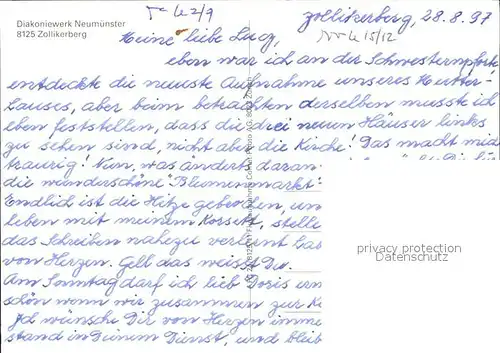 Diakoniewerk Neumünster
8125 Zollikerberg
Zollikerberg, 28.8.97
Meine liebe Lucy,
eben war ich an der Schwesternpforte
entdeckte die neuste Aufnahme unseres Mutter-
hauses, aber beim betrachten derselben musste ich
eben feststellen, dass die drei neuen Häuser links
zu sehen sind, nicht aber die Kirche! Das macht mich
traurig! Nun, was ändert's daran
die wunderschöne "Blumenmarkt
Endlich ist die Hitze gebrochen, un
leben mit meinem Korsett, stelle
das Schreiben nahezu verlernt hab
von Herzen. Gell das weisst Du.
Am Sonntag darf ich lieb Doris er
schön wenn wir zusammen zur K
Ich wünsche Dir von Herzen imme
stand in Deinem Dienst, und bleib
privacy protection
Datenschutz